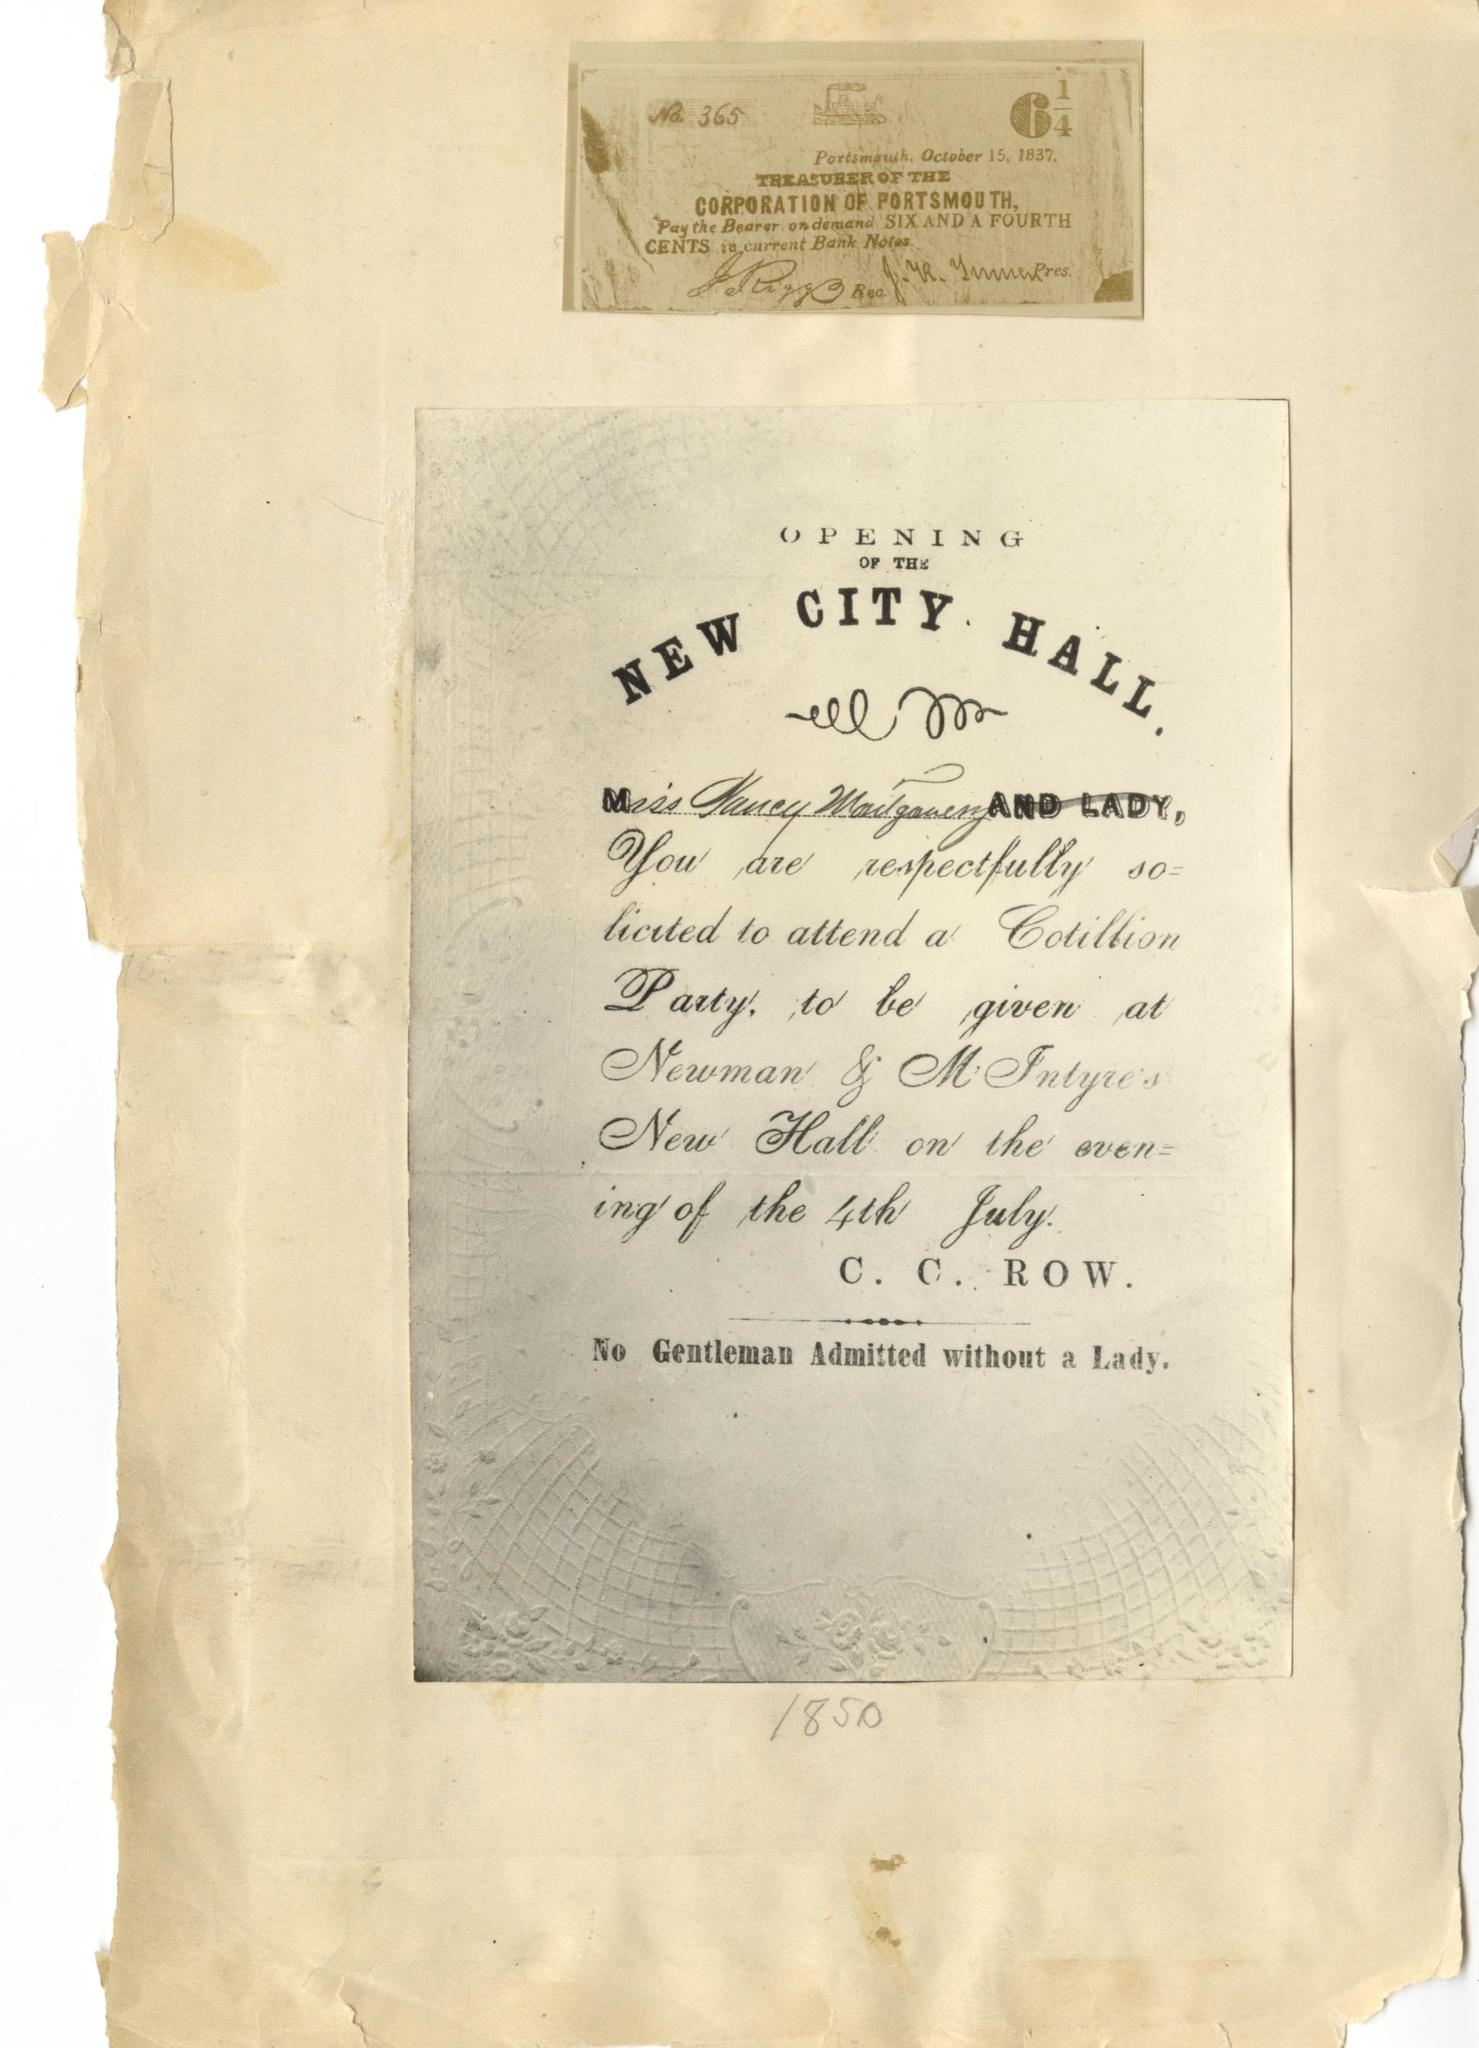 No. 365
6 1/4
Portsmouth, October 15, 1837.
TREASURER OF THE
CORPORATION OF PORTSMOUTH,
Pay the Bearer on demand SIX AND A FOURTH
CENTS in current Bank Notes.
J. Riggs Rec. J. R. Turner Pres.
OPENING
OF THE
NEW CITY HALL.
Miss Nancy Montgomery AND LADY,
You are respectfully so=
licited to attend a Cotillion
Party, to be given at
Newman & McIntyre's
New Hall on the even=
ing of the 4th July.
C. C. ROW.
No Gentleman Admitted without a Lady.
1850